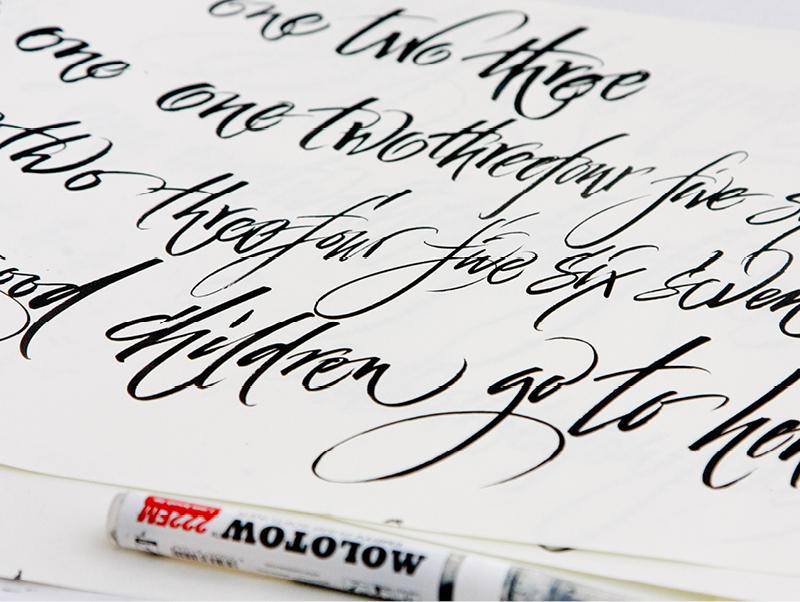 one two three
one one two three four five
two three four five six seven
good children go to
MOLOTOW
222EM